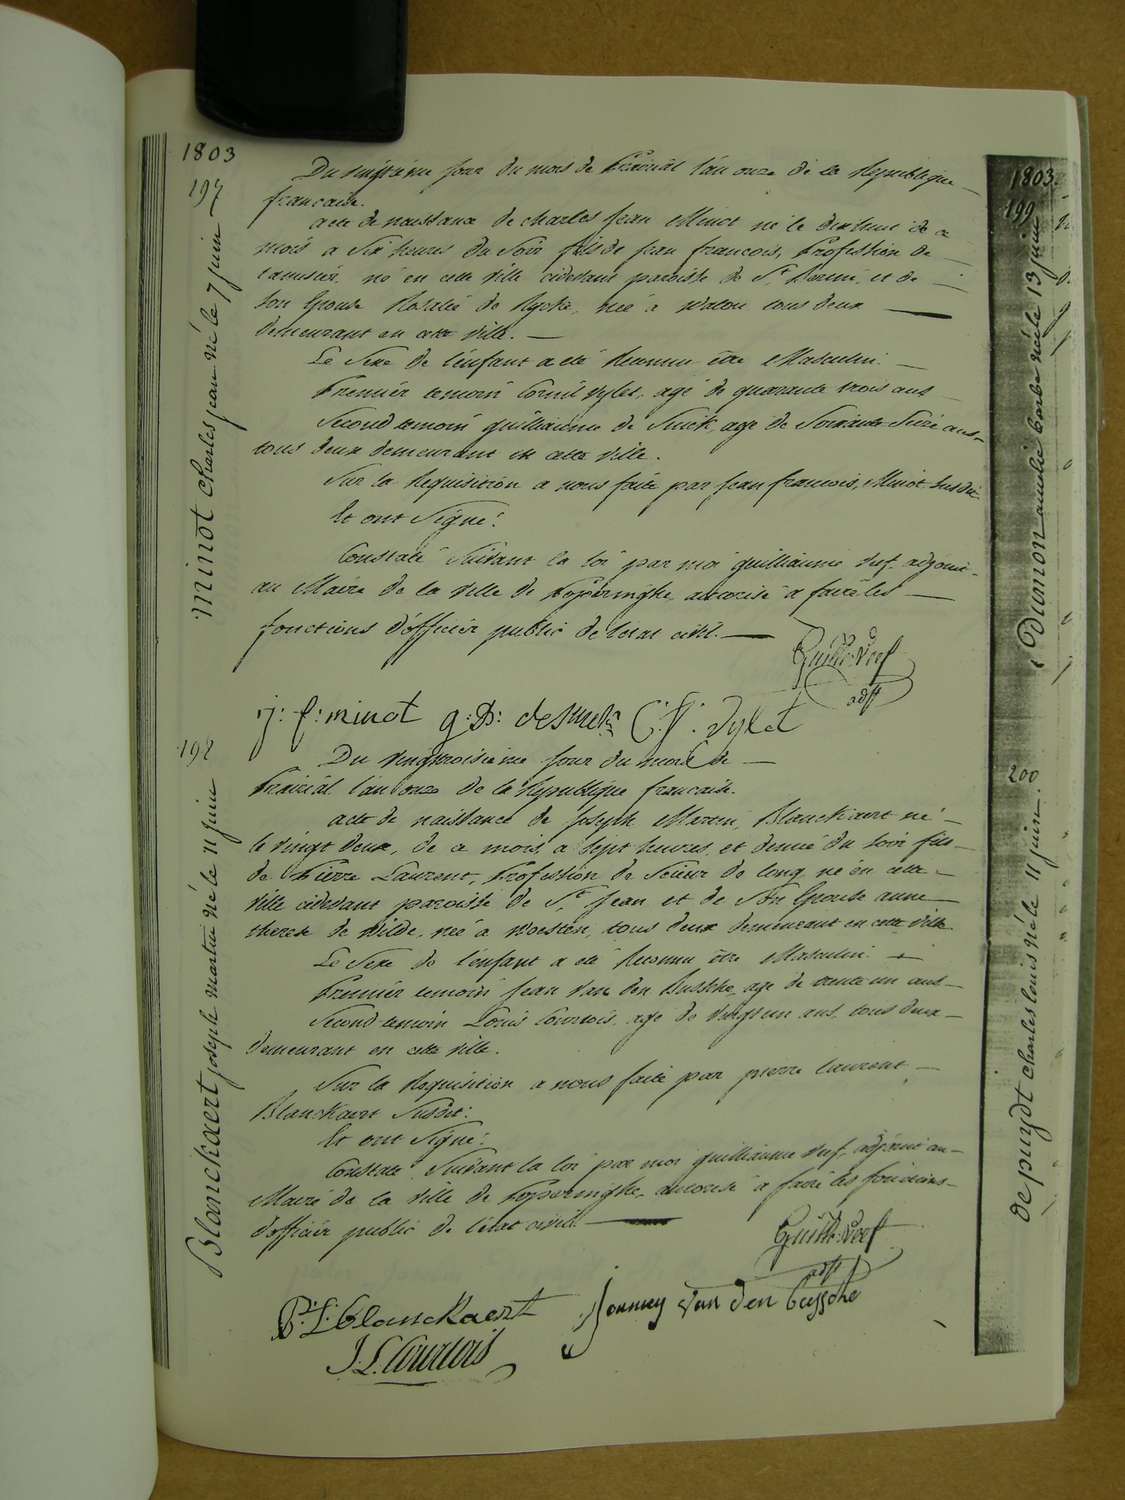 1803
197
minot charles jean né le 7 juin
Du vingtième jour du mois de Prairial l'an onze de la Republique
francaise.
acte de naissance de charles Jean Minot né le dixhuit de ce
mois a Six heures du Soir fils de Jean francois, Profession de
né en cette ville cidevant paroisse de St. Bertin, et de
Son Epouse Rosalie de Rycke, née a Watou tous deux
demeurant en cette ville.
Le Sexe de l'enfant a eté Reconnu être Masculin.
Premier temoin Cornil Dylet, agé de quarante trois ans
Second temoin guilliaume de Smek, age de Soixante Seize ans
tous deux demeurant en cette ville.
Sur la Requisition a nous faite par Jean francois, Minot Susdit
Et ont Signé:
Constaté Suivant la loi par moi guilliaume vuf, adjoint
au Maire de la ville de Poperinghe autorisé a faire les
fonctions d'officier public de l'etat civil.
adjt
j: f: minot g: D: desmek C: F: Dylet
198
Blanckaert joseph martin né le 11 juin
Du vingtroisième jour du mois de
Prairial l'an onze de la Republique francaise.
acte de naissance de Joseph Martin, Blanckaert né
le vingt deux, de ce mois, a Sept heures, et demie du soir fils
de Pierre Laurent, Profession de Scieur de long, né en cette
ville cidevant paroisse de St. Jean et de Son Epouse anne
therese de Wilde, née a Woesten, tous deux demeurant en cette ville.
Le Sexe de l'enfant a eté Reconnu être Masculin.
Premier temoin Jean Van den Bussche, age de trente un ans
Second temoin Louis Courtois, age de vingt un ans, tous deux
demeurant en cette ville.
Sur la Requisition a nous faite par pierre laurent
Blanckaert Susdit:
Et ont Signé:
Constaté Suivant la loi par moi guilliaume vuf, adjoint au
Maire de la ville de Poperinghe, autorisé a faire les fonctions
d'officier public de l'etat civil.
adjt
P: L: blanckaert
Joannes van den bussche
J. L. Courtois
1803
199
Dumon amelie barbe née le 13 juin
200
de puydt charles louis né le 11 juin